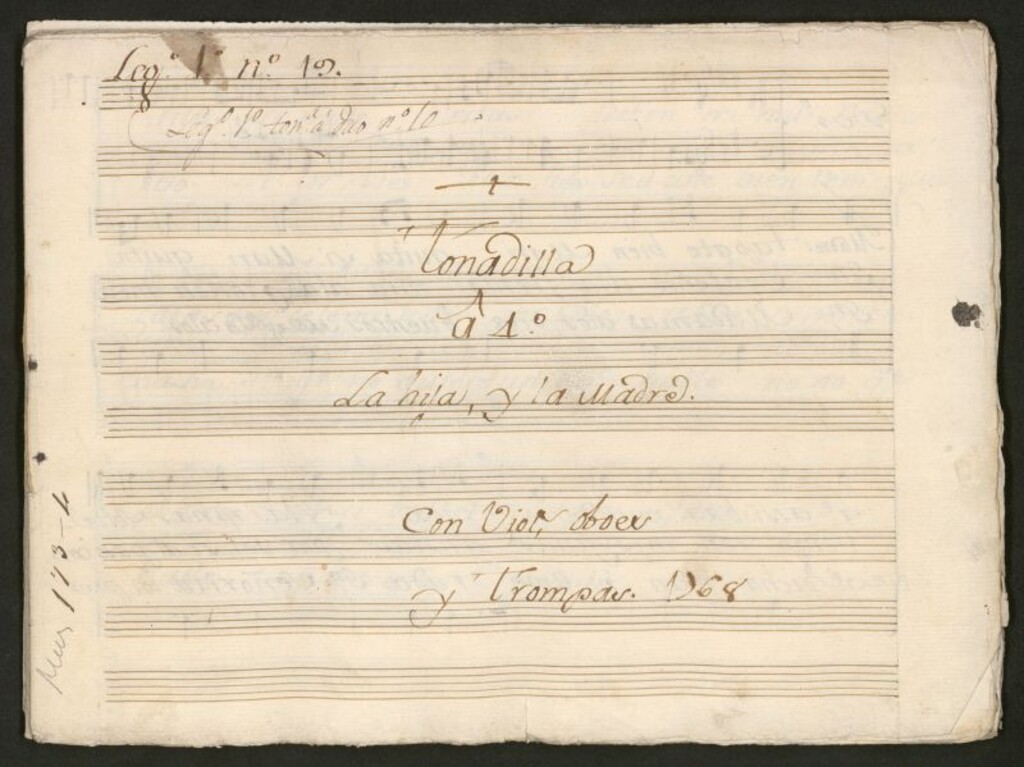 Leg.º 1.º n.º 19.
Leg.º 1.º ton.ª â Duo n.º 10
Tonadilla
â 4.º
La hija, y la Madre.
Con Viol.s, oboes
y Trompas. 1768
Mus 173-4